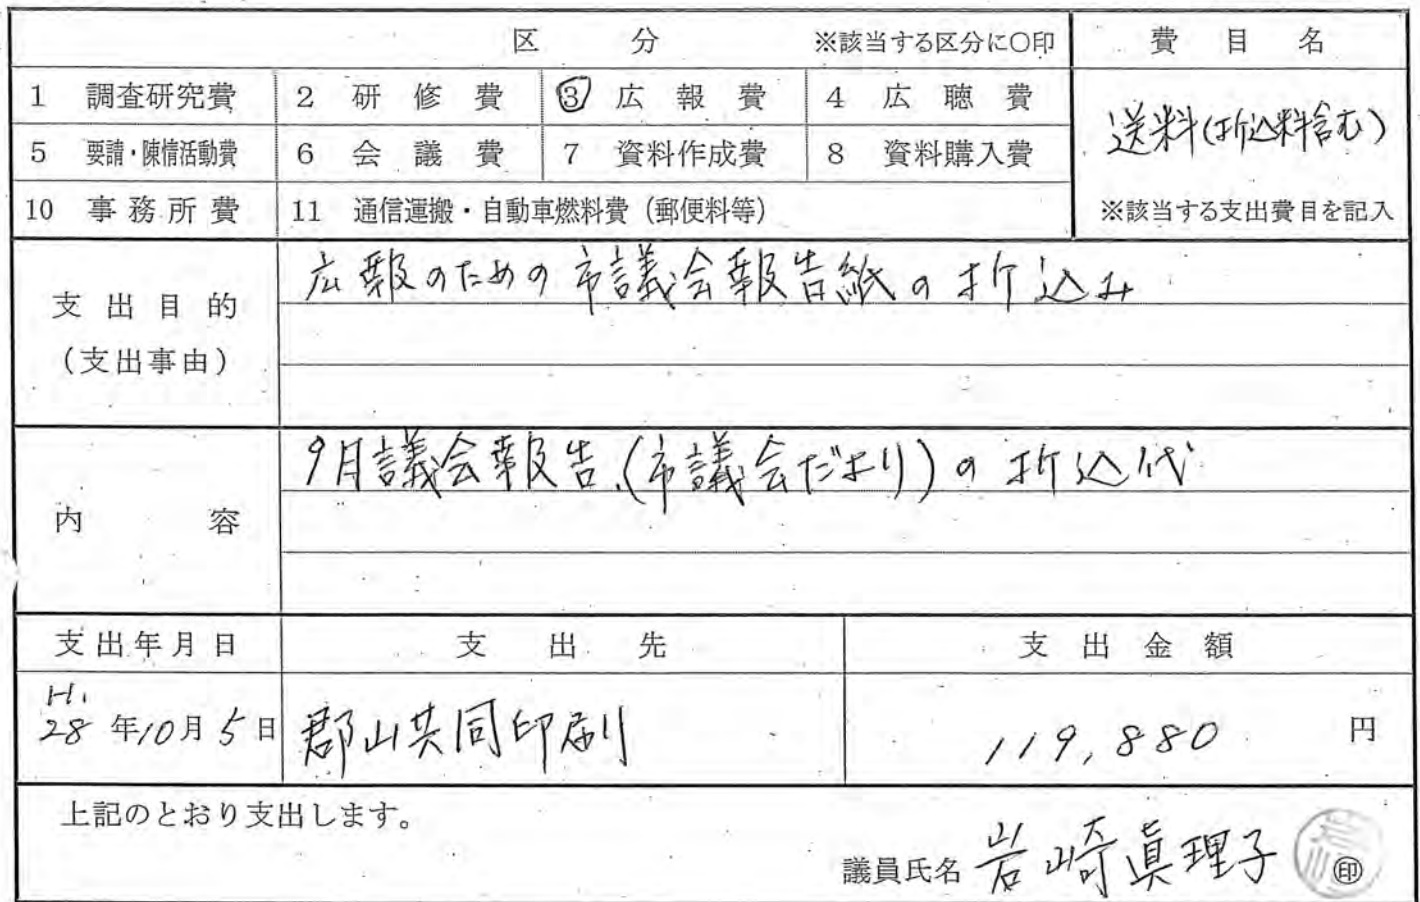 区 分 ※該当する区分に○印 費 目 名
1 調査研究費 2 研 修 費 ③ 広 報 費 4 広 聴 費
送料(折込料含む)
5 要請・陳情活動費 6 会 議 費 7 資料作成費 8 資料購入費
10 事務所費 11 通信運搬・自動車燃料費(郵便料等) ※該当する支出費目を記入
支出目的
(支出事由)
広報のための市議会報告紙の折込み
内 容
9月議会報告(市議会だより)の折込代
支出年月日 支 出 先 支 出 金 額
H.
28年10月5日 郡山共同印刷 119,880 円
上記のとおり支出します。
議員氏名 岩崎真理子 印